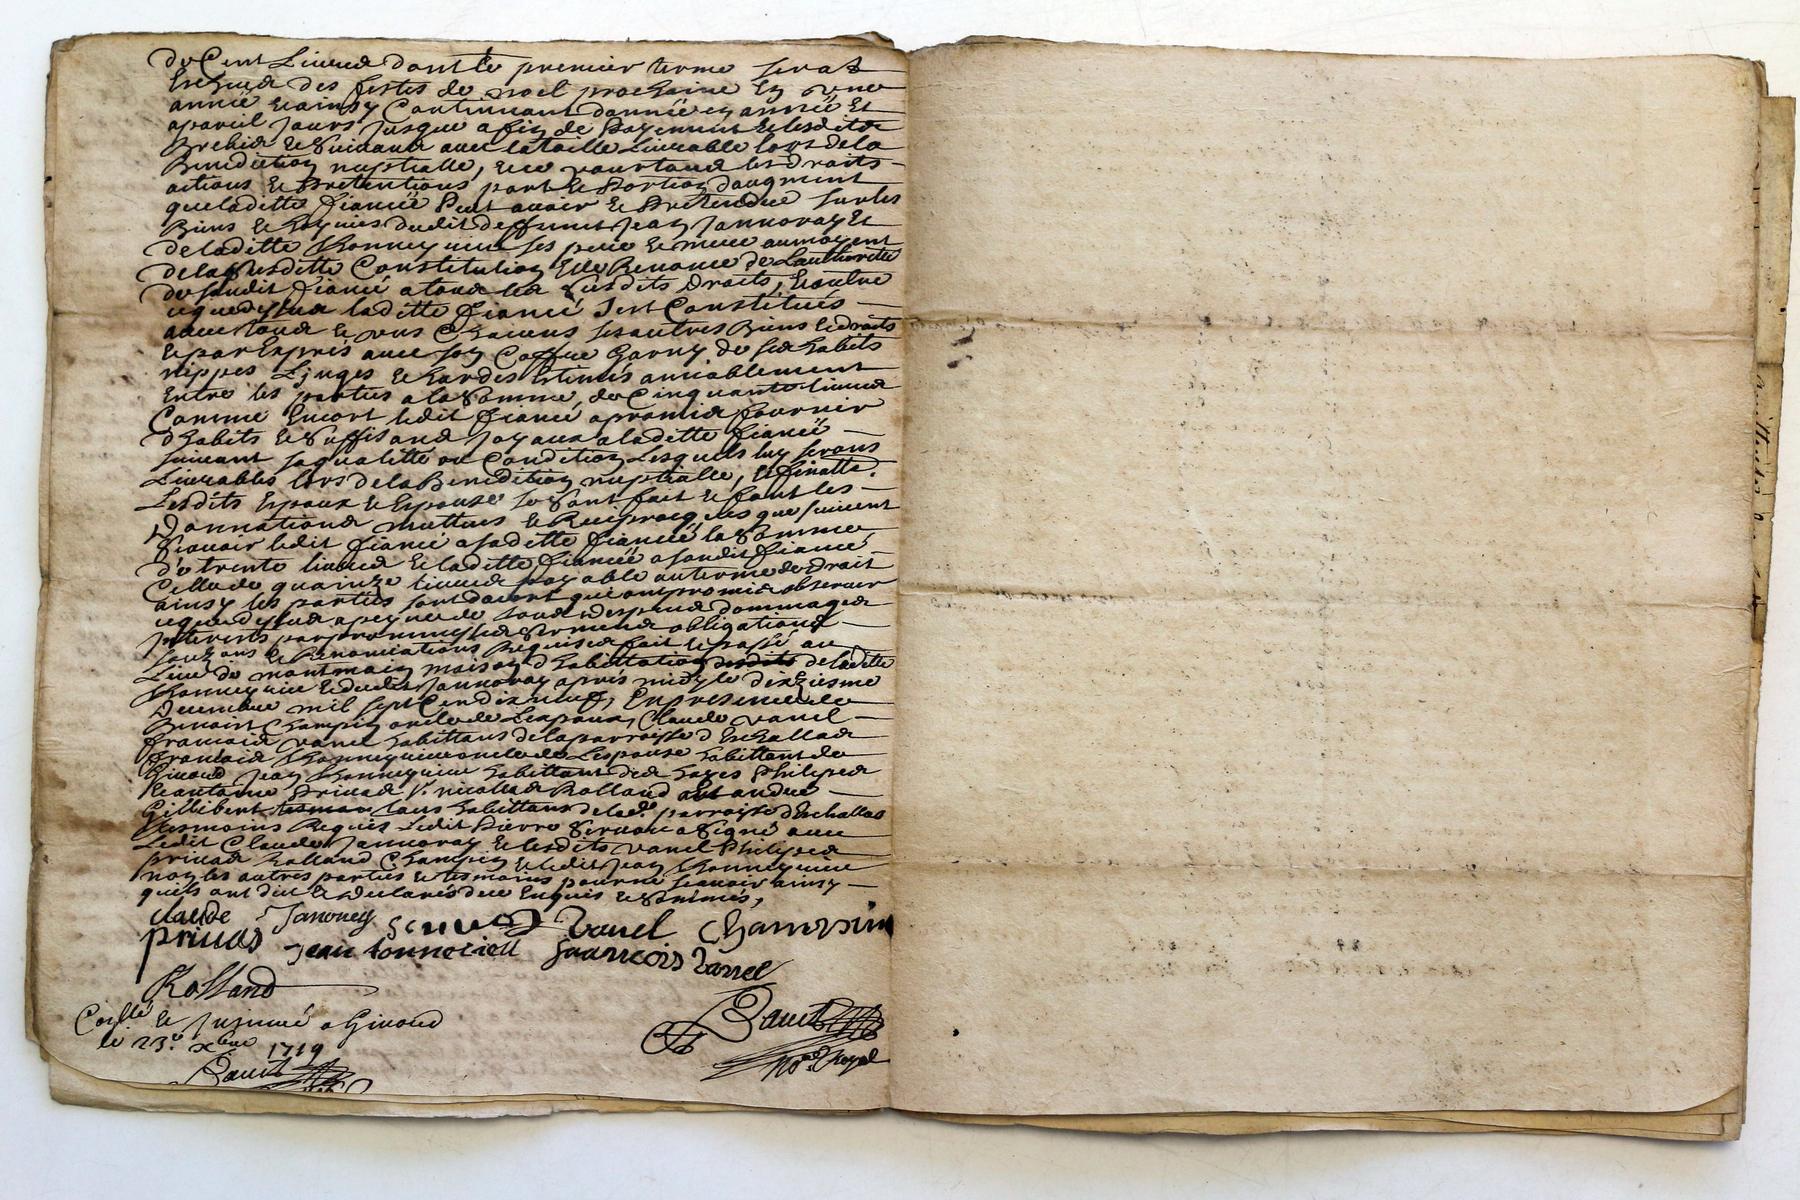 de Cent Livres dont le premier terme serat
Escheux des festes de noel prochaine En une
année et ainsy Continuant dannée en année Et
apareil Jours Jusque afin de payement et lesdites
Brebis et Suivans avec la taille Livrable lors de la
Benediction nuptialle, et ce pour tous les droits
actions et Pretentions part et Portion daugment
que laditte fiancée Peut avoir et Pretendre sur les
Biens et hoyries dudit deffunt Jean Jannoray Et
de laditte Thonnerieux ses pere et mere aumoyent
de la susditte Constitution Elle Renonce de Lauthoritté
de sondit fiancé a tous les susdits Droits, Et outre
ce que dessus laditte fiancée s'est Constituée
avec tous et uns Chacuns ses autres Biens et droits
et par Exprès avec son Coffre Garny de ses habits
nippes Linges et hardes Estimés amiablement
Entre les parties a la Somme de Cinquante livres
Comme Encort ledit fiancé a promis fournir
d'habits et Suffisans Joyaux a laditte fiancée
suivant sa qualitté ou Condition Lesquels luy serons
Livrables lors de la Benediction nuptialle, et finalle.
Lesdits Espoux et Espouse se Sont fait et font les
Donnations mutues et Reciproques que suivent
Scavoir ledit fiancé a saditte fiancée la Somme
de trente livres et laditte fiancée a sondit fiancé
Celle de quainze livres payable au terme de droit
ainsy les parties sont dacort qui ont promis observer
ce que dessus a peyne de tous despens dommages
Interests par promesses Sermens obligations
et Renonciations Requises fait et passé au
Lieu de montmain maison d'habittation de laditte
Thonnerieux et dudit Jannoray apres midy le dixziesme
Decembre mil sept Cent dix neuf, En presence de
Benoist Champin oncle de Lespoux, Claude vanel
francois vanel habittans de la parroisse d'Eschallas
francois Thonnerieux oncle de Lespouse habittant de
Givord Jean Thonnerieux habittant des hayes Philipes
et antoine Privas Sr nicollas Rolland et andré
Gillibert tous habittans de lad. parroisse d'Eschallas
tesmoins Requis Ledit Pierre Servoz a Signé avec
Ledit Claude Jannoray et lesdits vanel Philipes
privas Rolland Champin et ledit Jean Thonnerieux
non les autres parties et tesmoins pour ne scavoir ainsy
quils ont dit et Declarés de ce Enquis et Sommés,
claude Janorey Servoz Vanel Champin
privas Jean tonnerieu francois Vanel
Rolland
Collé et Insinué a Givord
le 23e xbre 1719
No.re Royal